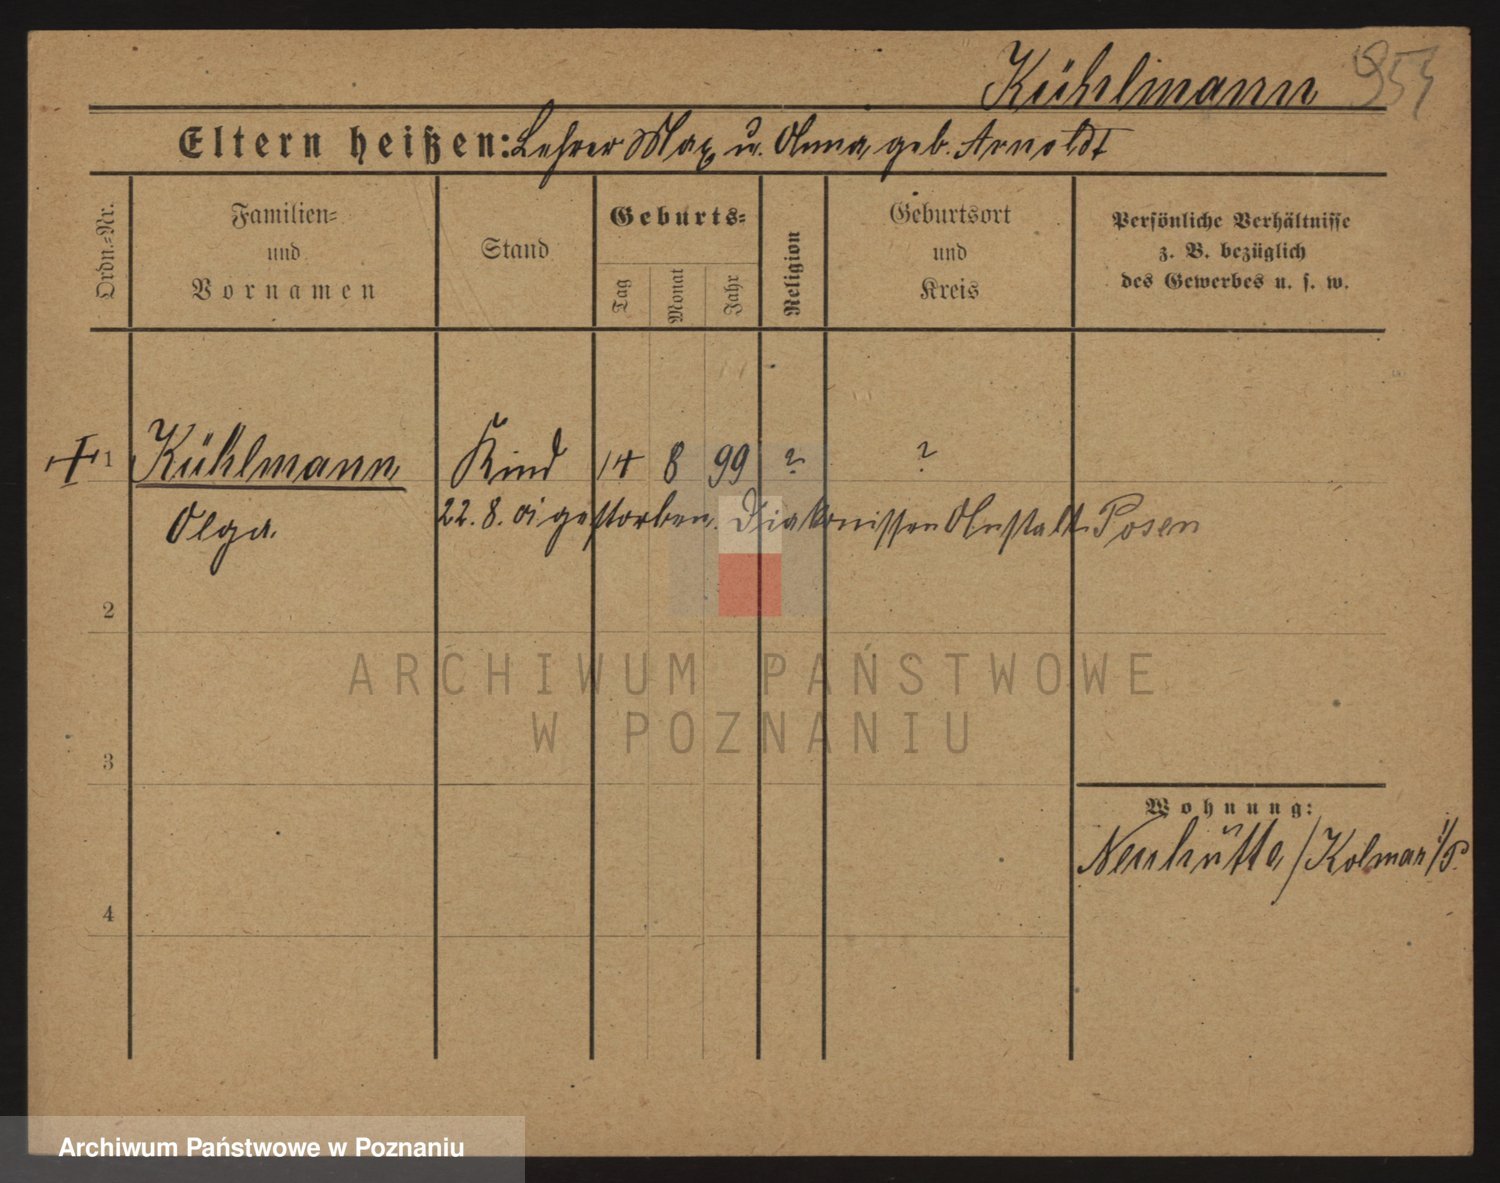 Kühlmann 954
Eltern heißen: Lehrer Max u. Anna, geb. Arnoldt
Ordn.-Nr.
Familien-
und
Vornamen
Stand
Geburts-
Tag
Monat
Jahr
Religion
Geburtsort
und
Kreis
Persönliche Verhältnisse
z. B. bezüglich
des Gewerbes u. s. w.
1 Kühlmann Kind 14 8 99 ? ?
Olga. 22. 8. 01 gestorben. Diakonissen Anstalt. Posen
2
3
4
Wohnung:
Neuhütte / Kolmar i/P.
ARCHIWUM PAŃSTWOWE
W POZNANIU
Archiwum Państwowe w Poznaniu